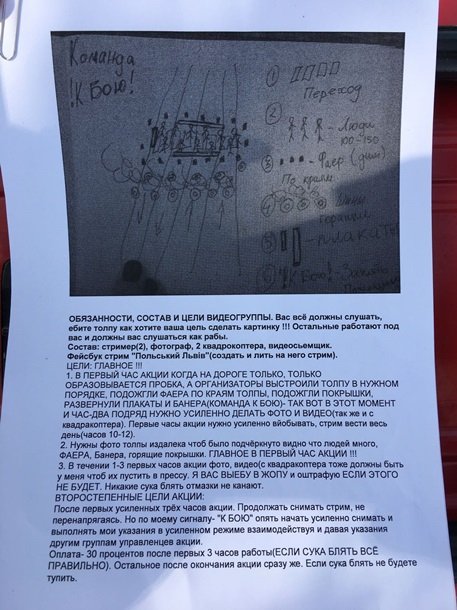 Команда
"К Бою!
① Переход
② - Люди
100-150
③ - Фаер (дым)
По краям
④ Шины
горящие
⑤ - плакаты
"К Бою!
ОБЯЗАННОСТИ, СОСТАВ И ЦЕЛИ ВИДЕОГРУППЫ. Вас всё должны слушать,
ебите толпу как хотите ваша цель сделать картинку !!! Остальные работают под
вас и должны вас слушаться как рабы.
Состав: стример(2), фотограф, 2 квадрокоптера, видеосъемщик.
Фейсбук стрим "Польський Львів"(создать и лить на него стрим).
ЦЕЛИ: ГЛАВНОЕ !!!
1. В ПЕРВЫЙ ЧАС АКЦИИ КОГДА НА ДОРОГЕ ТОЛЬКО, ТОЛЬКО
ОБРАЗОВЫВАЕТСЯ ПРОБКА, А ОРГАНИЗАТОРЫ ВЫСТРОИЛИ ТОЛПУ В НУЖНОМ
ПОРЯДКЕ, ПОДОЖГЛИ ФАЕРА ПО КРАЯМ ТОЛПЫ, ПОДОЖГЛИ ПОКРЫШКИ,
РАЗВЕРНУЛИ ПЛАКАТЫ И БАНЕРА(КОМАНДА К БОЮ)- ТАК ВОТ В ЭТОТ МОМЕНТ
И ЧАС-ДВА ПОДРЯД НУЖНО УСИЛЕННО ДЕЛАТЬ ФОТО И ВИДЕО(так же и с
квадракоптера). Первые часы акции нужно усиленно вйобывать, стрим вести весь
день(часов 10-12).
2. Нужны фото толпы издалека чтоб было подчёркнуто видно что людей много,
ФАЕРА, Банера, горящие покрышки. ГЛАВНОЕ В ПЕРВЫЙ ЧАС АКЦИИ !!!
3. В течении 1-3 первых часов акции фото, видео(с квадракоптера тоже должны быть
у меня чтоб их пустить в прессу. Я ВАС ВЫЕБУ В ЖОПУ и оштрафую ЕСЛИ ЭТОГО
НЕ БУДЕТ. Никакие сука блять отмазки не канают.
ВТОРОСТЕПЕННЫЕ ЦЕЛИ АКЦИИ:
После первых усиленных трёх часов акции. Продолжать снимать стрим, не
перенапрягаясь. Но по моему сигналу- "К БОЮ" опять начать усиленно снимать и
выполнять мои указания в усиленном режиме взаимодействуя и давая указания
другим группам управленцев акции.
Оплата- 30 процентов после первых 3 часов работы(ЕСЛИ СУКА БЛЯТЬ ВСЁ
ПРАВИЛЬНО). Остальное после окончания акции сразу же. Если сука блять не будете
тупить.